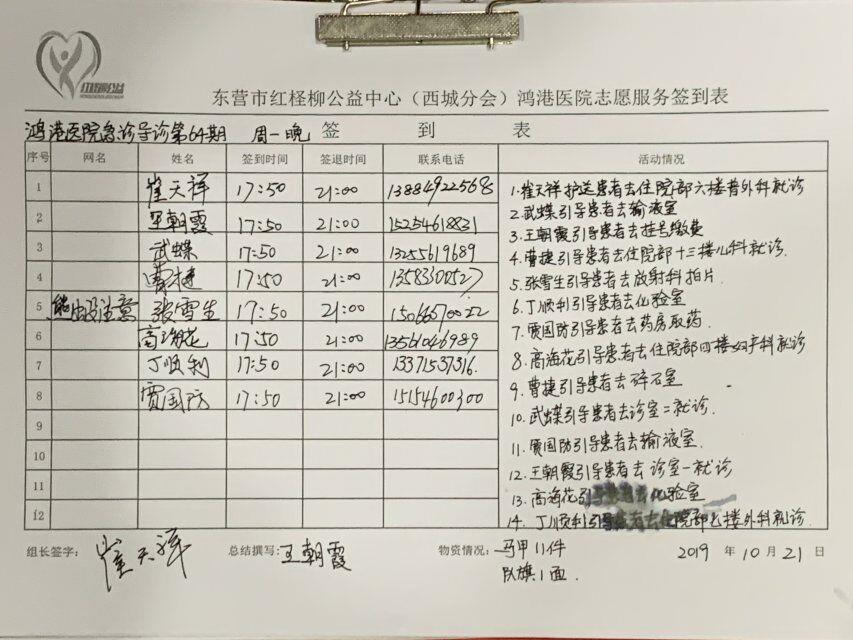 红柽柳公益
东营市红柽柳公益中心（西城分会）鸿港医院志愿服务签到表
鸿港医院急诊导诊第64期 周一晚 签 到 表
序号 网名 姓名 签到时间 签退时间 联系电话 活动情况
1 崔天祥 17:50 21:00 13884922568
2 王朝霞 17:50 21:00 15254618831
3 武蝶 17:50 21:00 13255619689
4 曹捷 17:50 21:00 13583300527
5 熊出没注意 张雪生 17:50 21:00 15066570022
6 高海花 17:50 21:00 13561046989
7 丁顺利 17:50 21:00 13371537316.
8 贾国防 17:50 21:00 15154600300
9
10
11
12
1.崔天祥护送患者去住院部六楼普外科就诊
2.武蝶引导患者去输液室
3.王朝霞引导患者去挂号缴费
4.曹捷引导患者去住院部十三楼儿科就诊.
5.张雪生引导患者去放射科拍片
6.丁顺利引导患者去化验室
7.贾国防引导患者去药房取药.
8.高海花引导患者去住院部四楼妇产科就诊
9.曹捷引导患者去碎石室
10.武蝶引导患者去诊室二就诊.
11.贾国防引导患者去输液室.
12.王朝霞引导患者去诊室一就诊
13.高海花引导患者去化验室
14.丁顺利引导患者去住院部七楼外科就诊.
组长签字: 崔天祥 总结撰写: 王朝霞 物资情况: 马甲11件 2019 年 10 月 21 日
队旗1面.